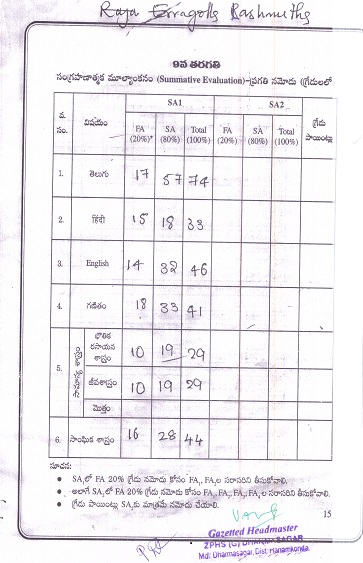 Raja Rashmitha
9వ తరగతి
సంగ్రహణాత్మక మూల్యాంకనం (Summative Evaluation)-ప్రగతి నమోదు (గ్రేడులలో
వ. సం. విషయం SA1 SA2 గ్రేడు పాయింట్లు
FA (20%)* SA (80%) Total (100%) FA (20%) SA (80%) Total (100%)
1. తెలుగు 17 57 74
2. హిందీ 15 18 33
3. English 14 32 46
4. గణితం 18 33 41
5. సామాన్య శాస్త్రం
భౌతిక రసాయన శాస్త్రం 10 19 29
జీవశాస్త్రం 10 19 29
మొత్తం
6. సాంఘిక శాస్త్రం 16 28 44
సూచన:
• SA₁లో FA 20% గ్రేడు నమోదు కోసం FA₁, FA₂ల సరాసరిని తీసుకోవాలి.
• అలాగే SA₂లో FA 20% గ్రేడు నమోదు కోసం FA₁, FA₂, FA₃, FA₄ల సరాసరిని తీసుకోవాలి.
• గ్రేడు పాయింట్లు SA₂కు మాత్రమే నమోదు చేయాలి.
15
Gazetted Headmaster
ZPHS (G) DHARMASAGAR
Md: Dharmasagar, Dist: Hanamkonda.